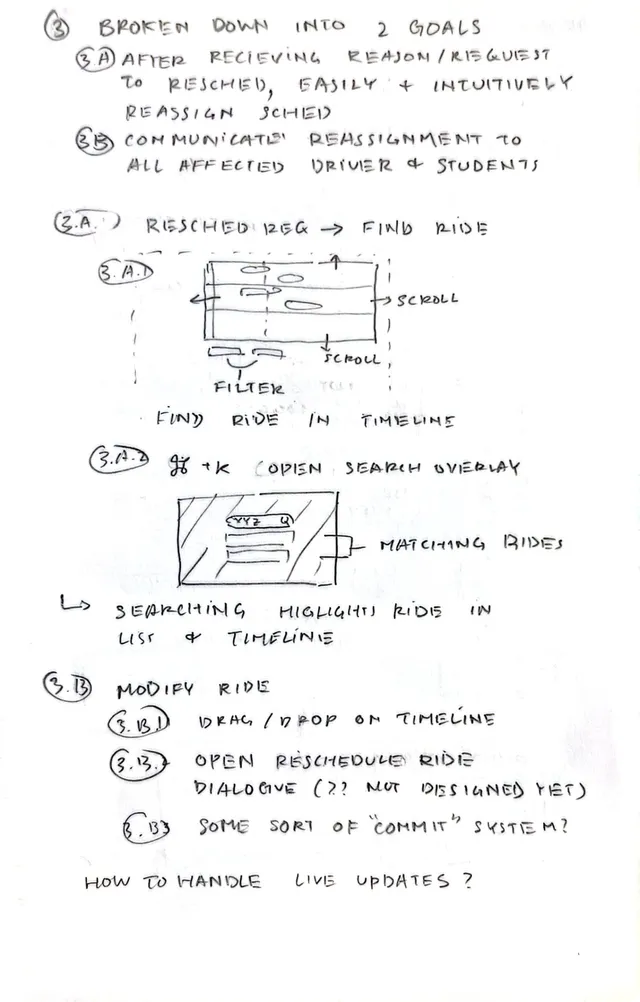 ③ BROKEN DOWN INTO 2 GOALS
3.A AFTER RECIEVING REASON/REQUEST
TO RESCHED, EASILY + INTUITIVELY
REASSIGN SCHED
3B COMMUNICATE REASSIGNMENT TO
ALL AFFECTED DRIVER & STUDENTS
3.A. RESCHED REQ → FIND RIDE
3.A.1
→ SCROLL
SCROLL
FILTER
FIND RIDE IN TIMELINE
3.A.2 ⌘ +K (OPEN SEARCH OVERLAY
XYZ
MATCHING RIDES
↳ SEARCHING HIGLIGHTS RIDE IN
LIST & TIMELINE
3.B MODIFY RIDE
3.B.1 DRAG / DROP ON TIMELINE
3.B.2 OPEN RESCHEDULE RIDE
DIALOGUE (?? NOT DESIGNED YET)
3.B3 SOME SORT OF "COMMIT" SYSTEM?
HOW TO HANDLE LIVE UPDATES ?